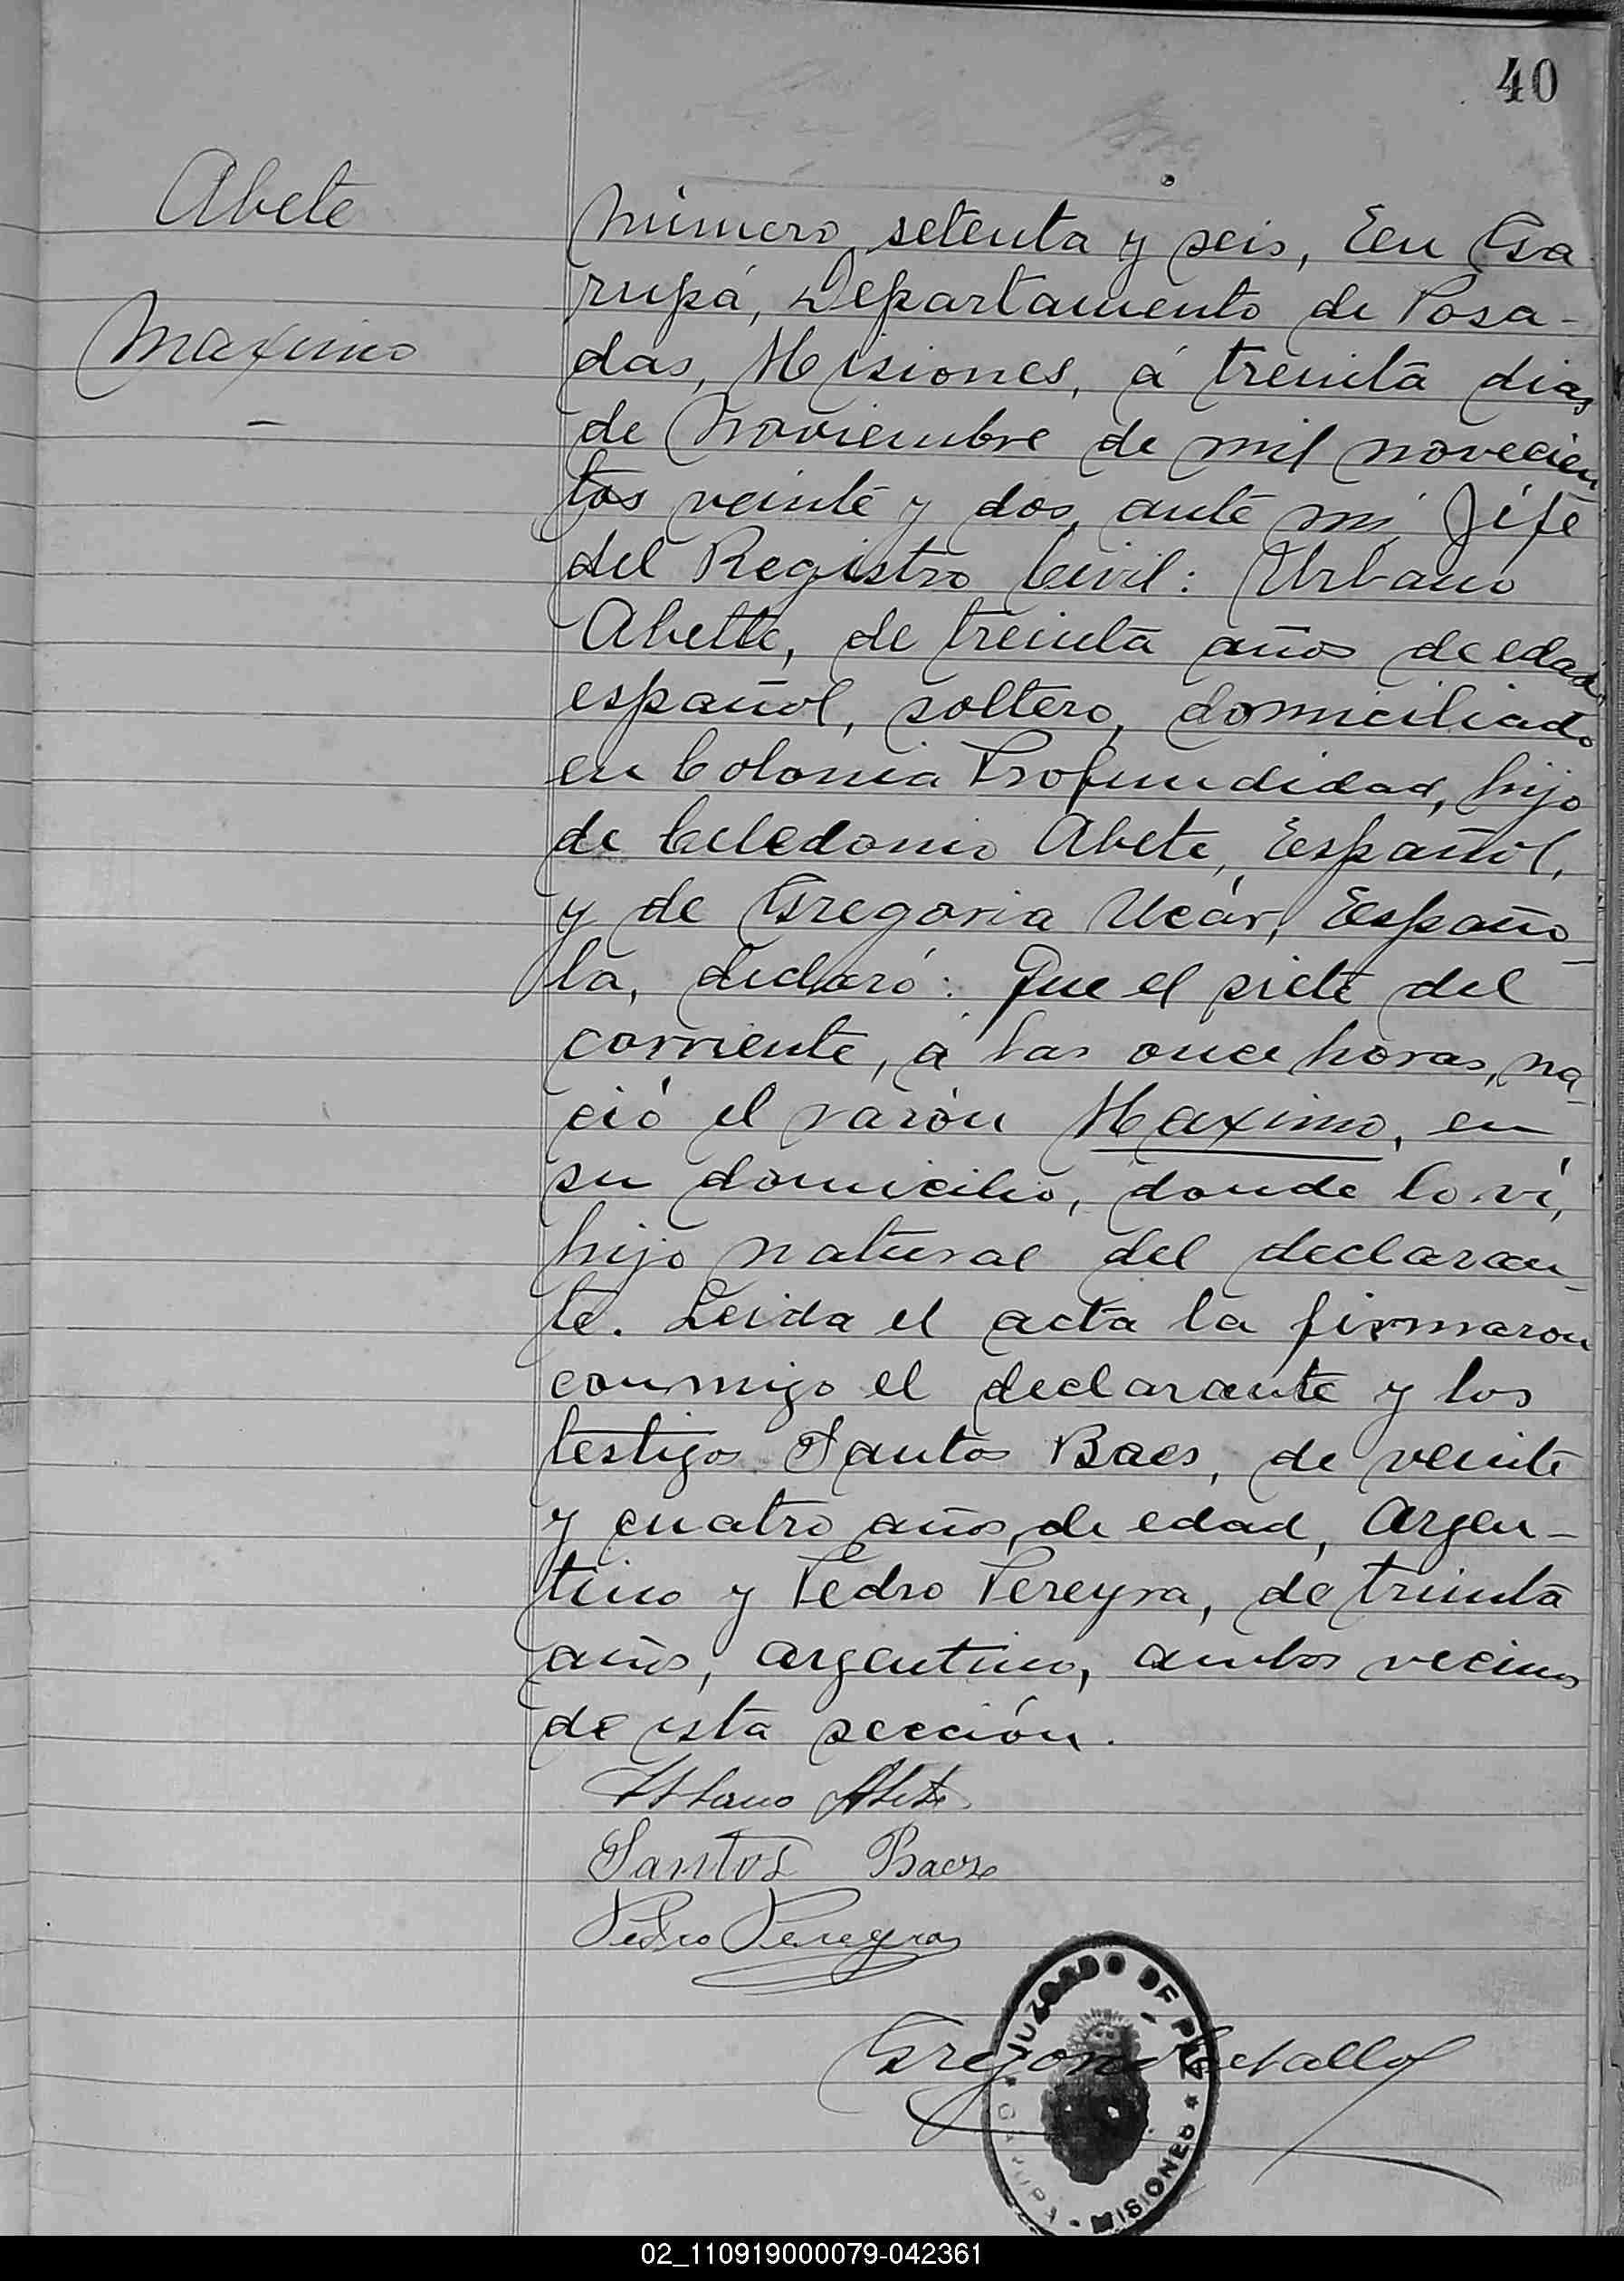 40
Abete
Maximo
Número setenta y seis, En Ga
rupá, Departamento de Posa-
das, Misiones, á treinta dias
de Noviembre de mil novecien
tos veinte y dos, ante mi, Jefe
del Registro Civil: Urbano
Abette, de treinta años de edad,
español, soltero, domiciliado
en Colonia Profundidad, hijo
de Celedonio Abete, Español,
y de Gregoria Ucár, Españo
la, declaró: Que el siete del
corriente, á las once horas, na
ció el varón Maximo, en
su domicilio, donde lo ví,
hijo natural del declaran
te. Leida el acta la firmaron
conmigo el declarante y los
testigos Santos Baes, de veinte
y cuatro años de edad, argen-
tino y Pedro Pereyra, de treinta
años, argentino, ambos vecinos
de esta sección.
Urbano Abete
Santos Baez
Pedro Pereyra
Gregorio
JUZGADO DE PAZ * MISIONES * GARUPA
02_110919000079-042361